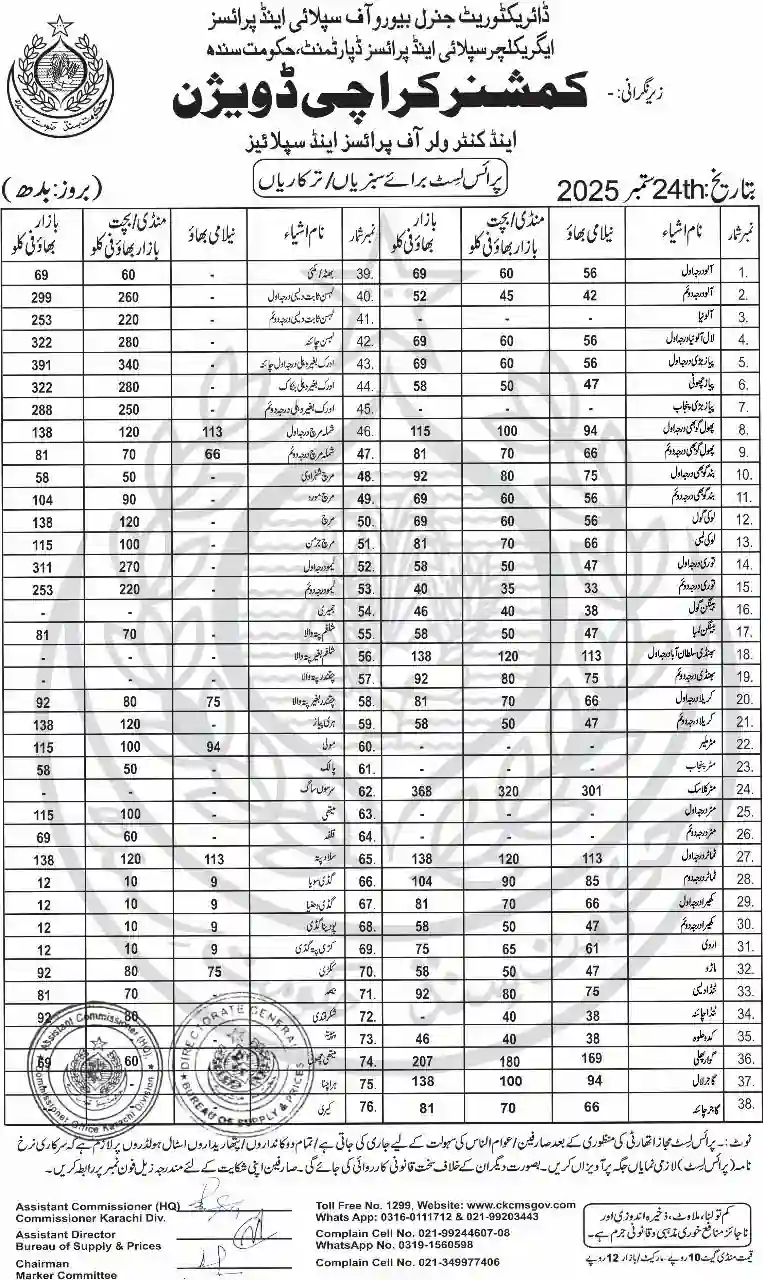 ڈائریکٹوریٹ جنرل بیورو آف سپلائی اینڈ پرائسز
ایگریکلچر سپلائی اینڈ پرائسز ڈپارٹمنٹ، حکومت سندھ
زیر نگرانی: -
کمشنر کراچی ڈویژن
اینڈ کنٹرولر آف پرائسز اینڈ سپلائیز
بتاریخ: 24th ستمبر 2025
پرائس لسٹ برائے سبزیاں/ ترکاریاں
(بروز: بدھ)
نمبر شمار نام اشیاء نیلامی بھاؤ منڈی/ بچت بازار بھاؤ فی کلو بازار بھاؤ فی کلو نمبر شمار نام اشیاء نیلامی بھاؤ منڈی/ بچت بازار بھاؤ فی کلو بازار بھاؤ فی کلو
1. آلو درجہ اول 56 60 69 39. 60 69
2. آلو درجہ دوئم 42 45 52 40. لہسن ثابت دیسی درجہ اول - 260 299
3. آلو نیا - - - 41. لہسن ثابت دیسی درجہ دوئم - 220 253
4. لال آلو نیا درجہ اول 56 60 69 42. لہسن چائنہ - 280 322
5. پیاز بڑی درجہ اول 56 60 69 43. ادرک بغیر دھلی درجہ اول چائنہ - 340 391
6. پیاز چھوٹی 47 50 58 44. ادرک بغیر دھلی بنکاک - 280 322
7. پیاز بڑی پنجاب - - - 45. ادرک بغیر دھلی درجہ دوئم - 250 288
8. پھول گوبھی درجہ اول 94 100 115 46. شملہ مرچ درجہ اول 113 120 138
9. پھول گوبھی درجہ دوئم 66 70 81 47. شملہ مرچ درجہ دوئم 66 70 81
10. بند گوبھی درجہ اول 75 80 92 48. مرچ شہزادی - 50 58
11. بند گوبھی درجہ دوئم 56 60 69 49. مرچ - 90 104
12. لوکی گول 56 60 69 50. مرچ - 120 138
13. لوکی لمبی 66 70 81 51. مرچ - 100 115
14. توری درجہ اول 47 50 58 52. لیمو درجہ اول - 270 311
15. توری درجہ دوئم 33 35 40 53. لیمو درجہ دوئم - 220 253
16. بینگن گول 38 40 46 54. - - -
17. بینگن لمبا 47 50 58 55. شلغم پتہ والا - 70 81
18. بھنڈی سلطان آباد درجہ اول 113 120 138 56. شلغم بغیر پتہ والا - - -
19. بھنڈی درجہ دوئم 75 80 92 57. چقندر پتہ والا - - -
20. کریلا درجہ اول 66 70 81 58. چقندر بغیر پتہ والا 75 80 92
21. کریلا درجہ دوئم 47 50 58 59. ہری پیاز - 120 138
22. مٹر ملیر - - - 60. مولی 94 100 115
23. مٹر پنجاب - - - 61. پالک - 50 58
24. مٹر کلاسک 301 320 368 62. سرسوں ساگ - - -
25. مٹر درجہ اول - - - 63. میتھی - 100 115
26. مٹر درجہ دوئم - - - 64. قلفہ - 60 69
27. ٹماٹر درجہ اول 113 120 138 65. سلاد پتہ 113 120 138
28. ٹماٹر درجہ دوئم 85 90 104 66. گڈی سویا 9 10 12
29. کھیرا درجہ اول 66 70 81 67. گڈی دھنیا 9 10 12
30. کھیرا درجہ دوئم 47 50 58 68. پودینا گڈی 9 10 12
31. اروی 61 65 75 69. کڑی پتہ گڈی 9 10 12
32. 47 50 58 70. ککڑی 75 80 92
33. ٹنڈا دیسی 75 80 92 71. - 70 81
34. ٹنڈا چائنہ 38 40 - 72. شکرقندی 80 92
35. کدو حلوہ 38 40 46 73.
36. گوار پھلی 169 180 207 74. میتھی چھوٹی 60 69
37. گاجر لال 94 100 138 75. ہرا چنا
38. گاجر چائنہ 66 70 81 76. کیری
Assistant Commissioner (HQ)
Commissioner Office Karachi Division
DIRECTORATE GENERAL
BUREAU OF SUPPLY & PRICES
نوٹ: - پرائس لسٹ مجاز اتھارٹی کی منظوری کے بعد صارفین/ عوام الناس کی سہولت کے لیے جاری کی جاتی ہے/ تمام دوکانداروں/ پتھاریداروں/ اسٹال ہولڈروں پر لازم ہے کہ سرکاری نرخ
نامہ (پرائس لسٹ) لازمی نمایاں جگہ پر آویزاں کریں۔ بصورت دیگر ان کے خلاف سخت قانونی کارروائی کی جائے گی۔ صارفین اپنی شکایت کے لئے مندرجہ ذیل فون نمبر پر رابطہ کریں۔
Assistant Commissioner (HQ)
Commissioner Karachi Div.
Assistant Director
Bureau of Supply & Prices
Chairman
Marker Committee
Toll Free No. 1299, Website: www.ckcmsgov.com
Whats App: 0316-0111712 & 021-99203443
Complain Cell No. 021-99244607-08
WhatsApp No. 0319-1560598
Complain Cell No. 021-349977406
کم تولنا، ملاوٹ، ذخیرہ اندوزی اور
ناجائز منافع خوری مذہبی و قانونی جرم ہے۔
قیمت منڈی گیٹ 10 روپے - مارکیٹ/ بازار 12 روپے